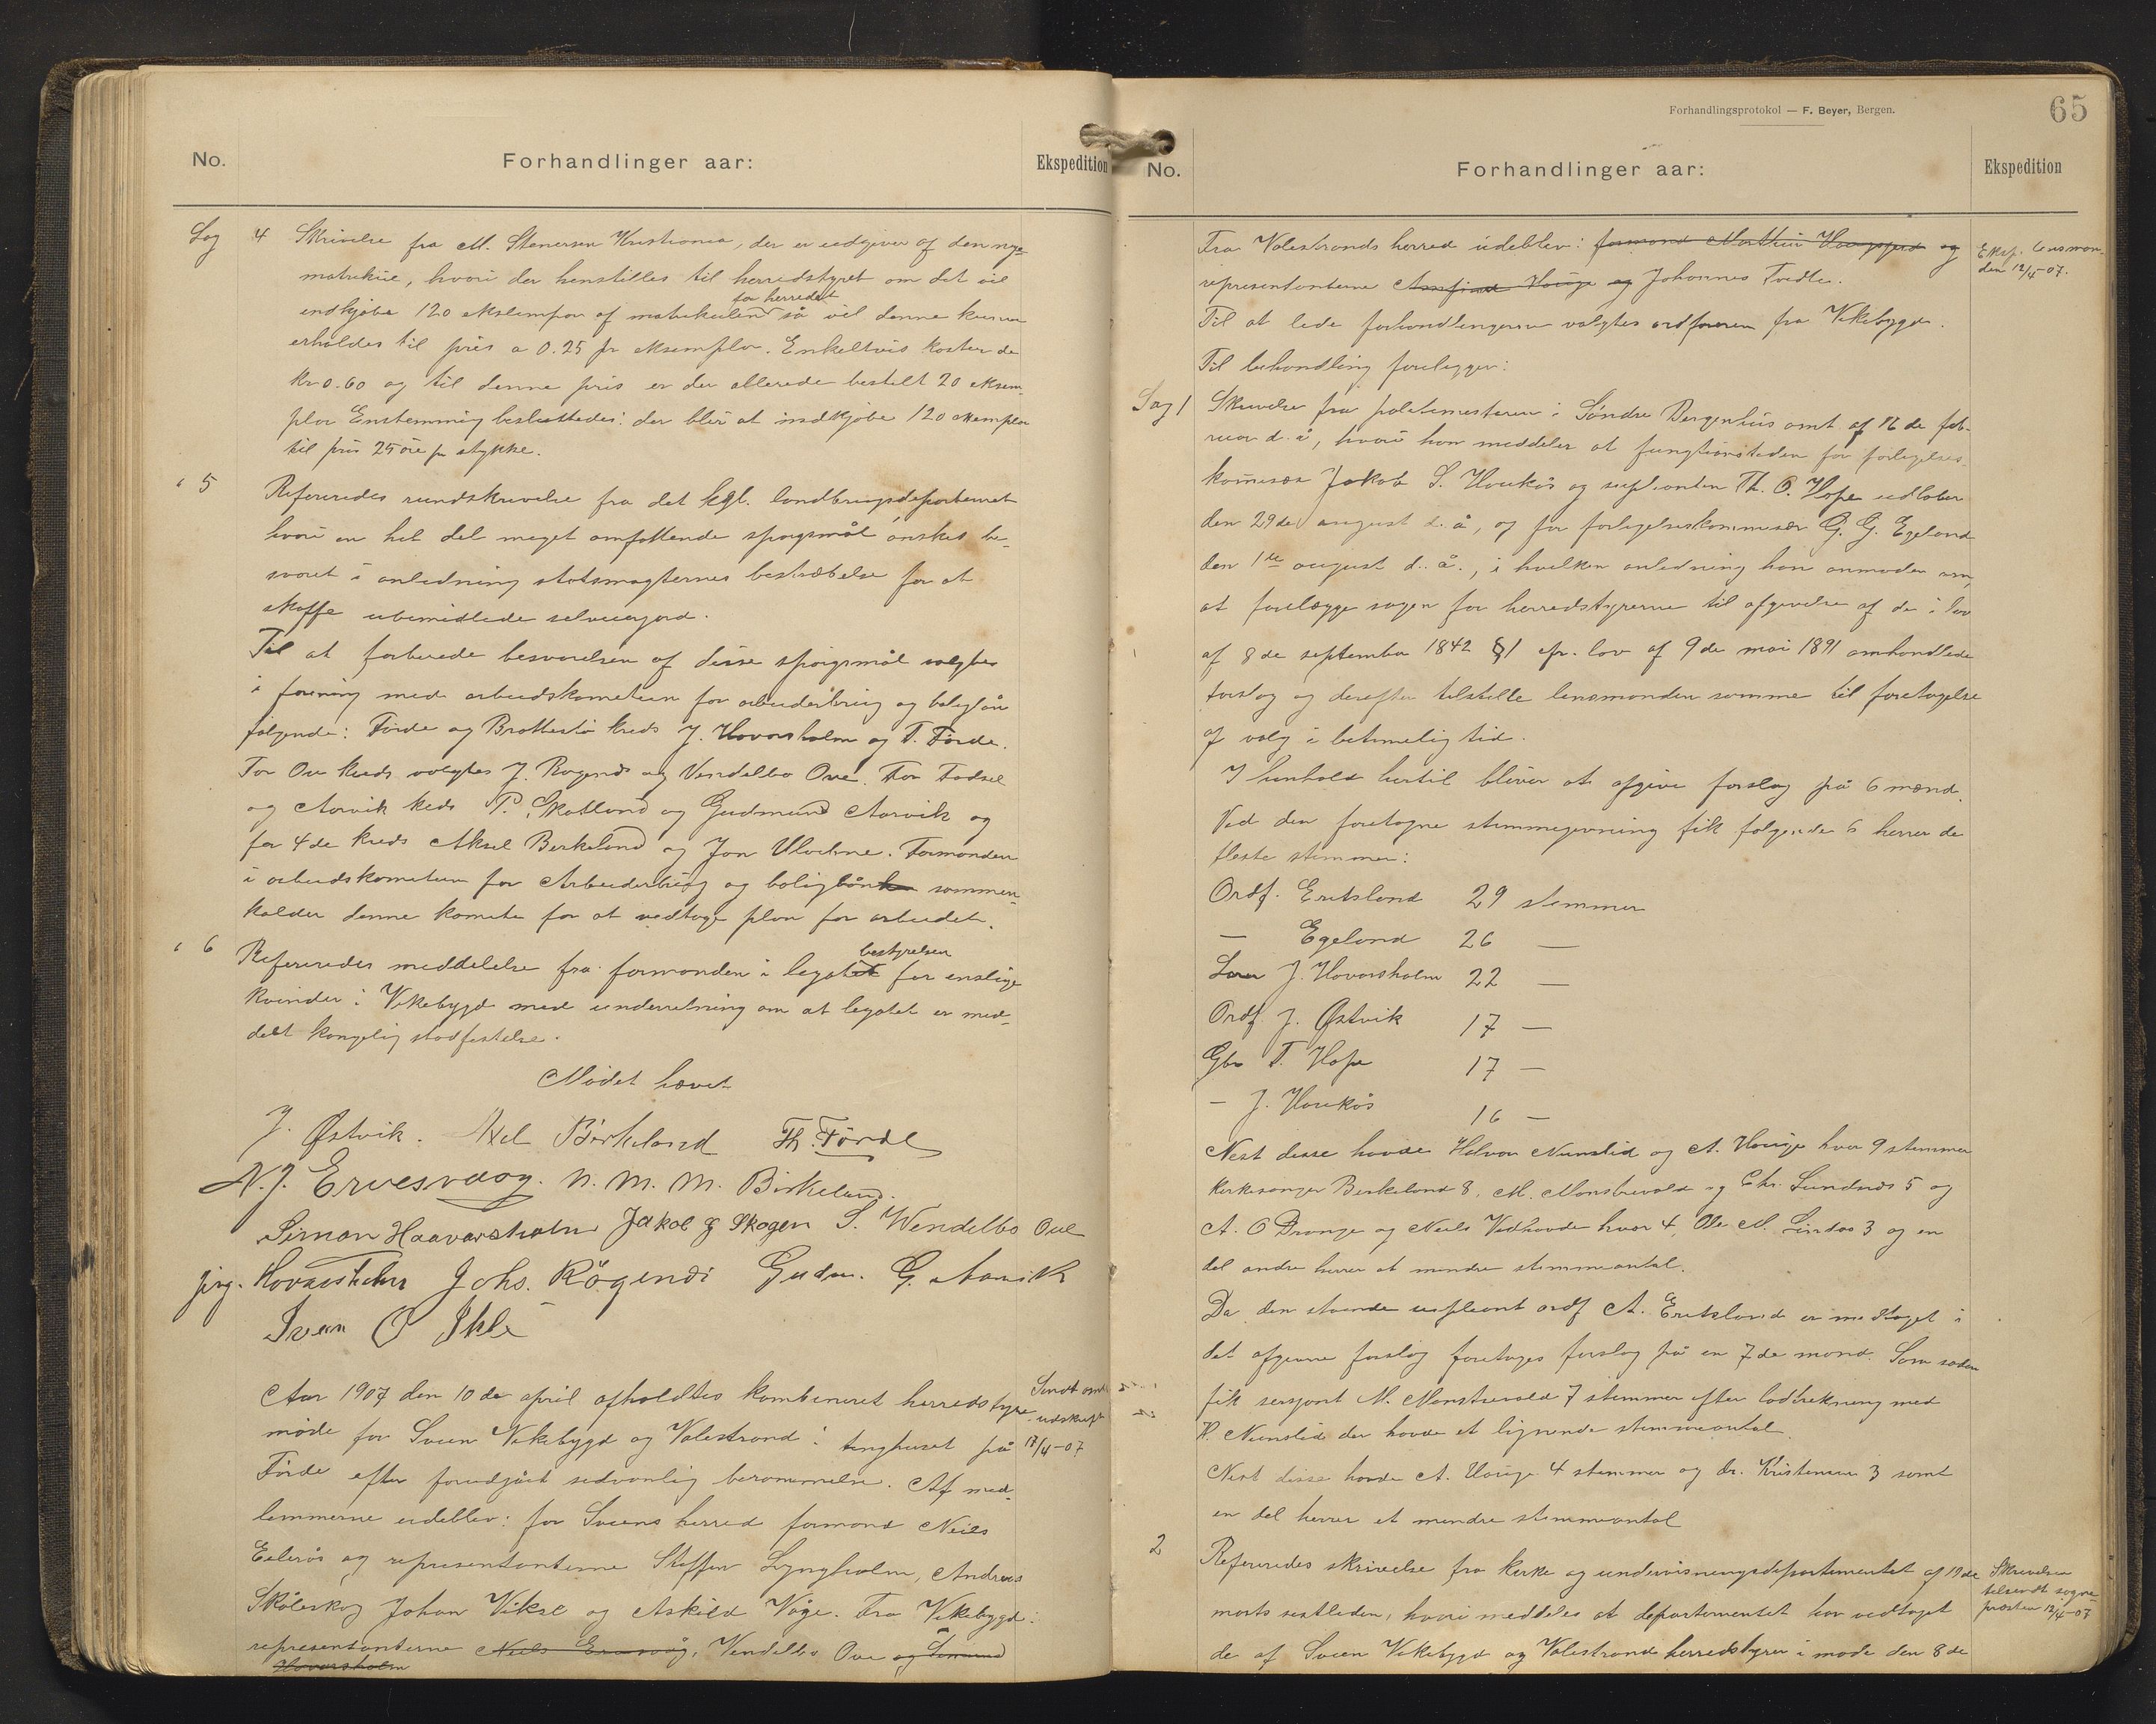 No. Forhandlinger aar: Ekspedition
Sag 4 Skrivelse fra M. Stenersen Kristiania, der er udgiver af den nye
matrikul, hvori der henstilles til herredstyret om det vil
for herredet
indkjøbe 120 eksemplar af matrikulen så vil denne kunne
erholdes til pris a 0.25 pr eksemplar. Enkeltvis koster de
kr 0.60 og til denne pris er der allerede bestilt 20 eksem-
plar Enstemmig besluttedes: der blir at indkjøbe 120 eksemplar
til pris 25 øre pr stykke.
" 5 Refereredes rundskrivelse fra det kgl. landbrugsdepartemet
hvori en hel del meget omfattende spørgsmål ønskes be-
svaret i anledning statsmagternes bestræbelse for at
skaffe ubemidlede selveierjord.
Til at forberede besvarelsen af disse spørgsmål valgtes
i forening med arbeidskomiteen for arbeiderbrug og boliglån
følgende: Førde og Brattestø kreds J. Hovarsholm og T. Førde.
For Ove kreds valgtes J. Røgenes og Vendelbo Ove. For
og Aarvik kreds P. Skotland og Gudmund Aarvik og
for 4de kreds Aksel Berkeland og Jon Ulvehne. Formanden
i arbeidskomiteen for Arbeiderbrug og boliglån sammen-
kalder denne komite for at vedtage plan for arbeidet.
" 6 bestyrelsen
Refereredes meddelelse fra formanden i legatet for enslige
kvinder i Vikebygd med underretning om at legatet er med-
delt kongelig stadfestelse.
Mødet hævet
J. Østvik. Axel Birkeland Th. Førde
N. J. Ervesvaag. N. M. M. Birkeland.
Simon Haavarsholm Jakob G Skogen S. Wendelbo Ove
Jørg. Hovarsholm Johs. Røgenes Gudm. G. Aarvik
Iven O
Aar 1907 den 10de april afholdtes kombineret herredstyre-
møde for Sveen Vikebygd og Valestrand i tinghuset på
Førde efter foredgået sedvanlig berammelse. Af med-
lemmerne udeblev: for Sveens herred formand Neils
Eelerås og representanterne Steffen Lyngholm, Andreas
Skåleskog Johan Vikse og Askild Våge. Fra Vikebygd:
representanterne Neils Ervesvåg, Vendelbo Ove og Simand
Hovarsholm
Sendt amt
udskrift
17/4-07
Forhandlingsprotokol — F. Beyer, Bergen.
65
No. Forhandlinger aar: Ekspedition
Fra Valestrands herred udeblev: formand Mathias og
representanterne Anfind Houge og Johannes Tvedte.
Til at lede forhandlingerne valgtes ordføreren fra Vikebygd.
Til behandling forelegger:
Eksp. lensman-
den 12/4-07.
Sag 1 Skrivelse fra politimesteren i Søndre Bergenhus amt af 16de feb-
ruar d. å, hvori han meddeler at fungtionstiden for forligelses-
komisær Jakob S. Haukås og suplianten Th. O. Hope udløber
den 29de august d. å, og for forligelseskommisær G. G. Egeland
den 1ste august d. å., i hvilken anledning han anmoder om,
at forelægge sagen for herredstyrerne til afgivelse af de i lov
af 8de september 1842 § 1 cfr. lov af 9de mai 1891 omhandlede
forslag og derefter tilstille lensmanden samme til foretagelse
af valg i betimelig tid.
I henhold hertil bliver at afgive forslag på 6 mænd.
Ved den foretagne stemmegivning fik følgende 6 herrer de
fleste stemmer:
Ordf. Eritsland 29 stemmer
— Egeland 26 —
Lærer J. Hovarsholm 22 —
Ordf. J. Østvik 17 —
Gbr T. Hope 17 —
— J. Haukås 16 —
Nest disse havde Halvor Nernslid og A. Houge hver 9 stemmer
kirkesanger Berkeland 8, M. Monstrevold og Chr. Sundnes 5 og
A. O Drange og Neils Vedhovde hver 4, Ole M. Lindøs 3 og en
del andre herrer et mindre stemmeantal.
Da den stående supleant ordf A. Eritsland er medtaget i
det afgivne forslag foretages forslag på en 7de mand. Som sådan
fik sersjant M. Monstrevold 7 stemmer efter lodtrekning med
H. Nernslid der havde et lignende stemmeantal.
Nest disse havde A. Houge 4 stemmer og dr. Kristensen 3 samt
en del herrer et mindre stemmeantal
2 Refereredes skrivelse fra kirke og undervisningsdepartementet af 19de
marts sistleden, hvori meddeles at departementet har vedtaget
de af Sveen Vikebygd og Valestrands herredstyrer i møde den 8de
Skrivelsen
tilsendt sogne-
presten 12/4-07